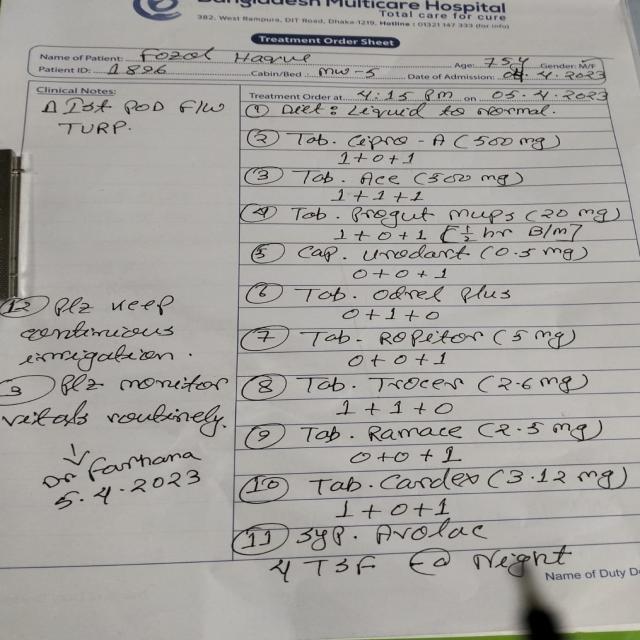 Bangladesh Multicare Hospital
Total care for cure
382, West Rampura, DIT Road, Dhaka-1219, Hotline : 01321 147 333 (for info)
Treatment Order Sheet
Name of Patient: Fozol Haque Age: 75y Gender: M/F
Patient ID: 1896 Cabin/Bed MW-5 Date of Admission: 04.4.2023
Clinical Notes:
Δ 1st POD F/W
TURP.
Treatment Order at 4:15 pm on 05.4.2023
① Diet: Liquid to normal.
② Tab. Cipro-A (500 mg)
1+0+1
③ Tab. Ace (500 mg)
1+1+1
④ Tab. Progut mups (20 mg)
1+0+1 [½ hr B/m]
⑤ Cap. Urodart (0.5 mg)
0+0+1
⑥ Tab. Odrel Plus
0+1+0
⑦ Tab. Ropitor (5 mg)
0+0+1
⑧ Tab. Trocer (2.6 mg)
1+1+0
⑨ Tab. Ramace (2.5 mg)
0+0+1
⑩ Tab. Cardex (3.12 mg)
1+0+1
⑪ Syp. Avolac
4 TSF @ Night
⑫ Plz keep
continuous
irrigation.
Plz monitor
vitals routinely.
Dr Farhana
5.4.2023
Name of Duty D